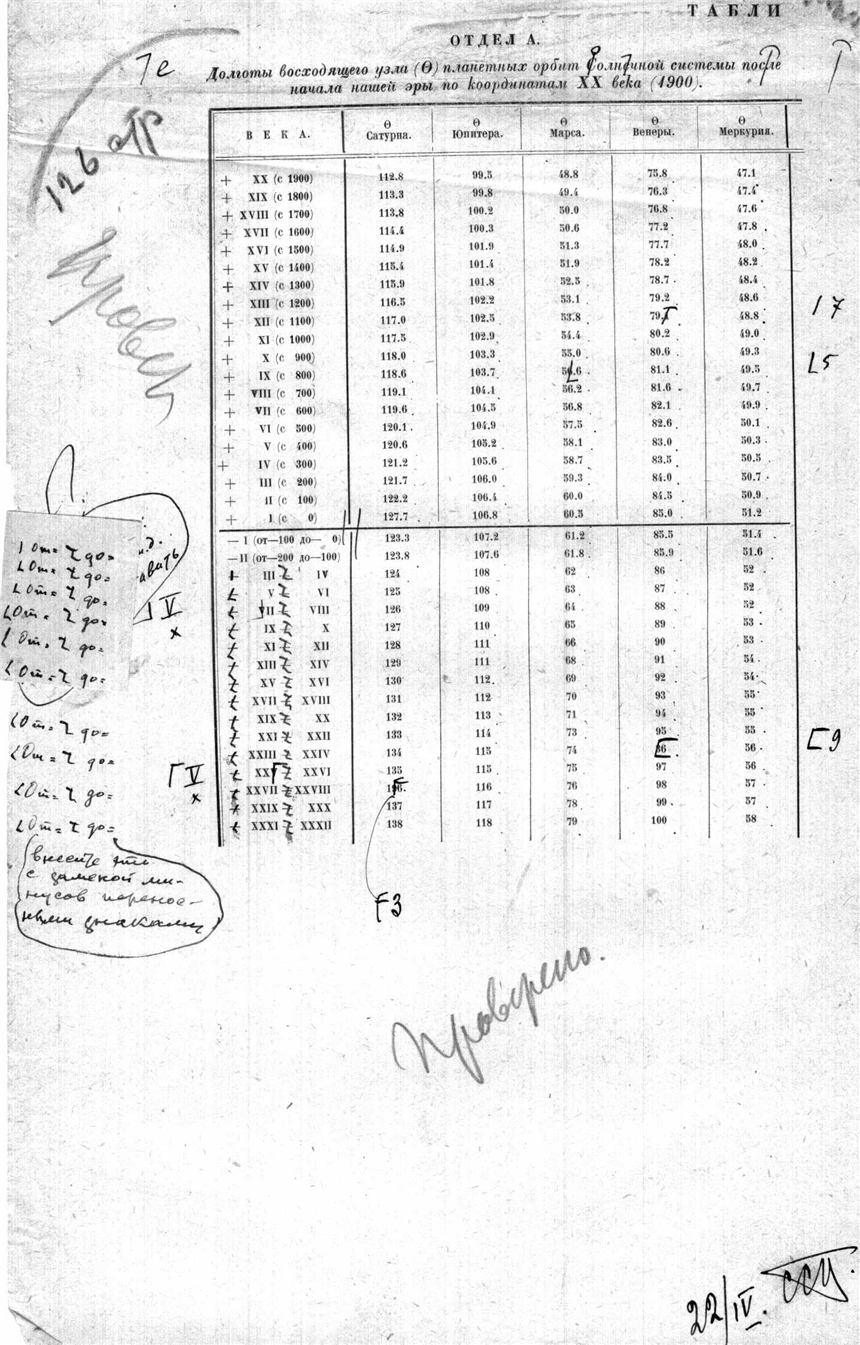 ТАБЛИ
ОТДЕЛ А.
Долготы восходящего узла (Θ) планетных орбит солнечной системы после
начала нашей эры по координатам XX века (1900).
7е
126 стр
Провер
ВЕКА. Θ Сатурна. Θ Юпитера. Θ Марса. Θ Венеры. Θ Меркурия.
+ XX (с 1900) 112.8 99.5 48.8 75.8 47.1
+ XIX (с 1800) 113.3 99.8 49.4 76.3 47.4
+ XVIII (с 1700) 113.8 100.2 50.0 76.8 47.6
+ XVII (с 1600) 114.4 100.3 50.6 77.2 47.8
+ XVI (с 1500) 114.9 101.9 51.3 77.7 48.0
+ XV (с 1400) 115.4 101.4 51.9 78.2 48.2
+ XIV (с 1300) 115.9 101.8 52.5 78.7 48.4
+ XIII (с 1200) 116.5 102.2 53.1 79.2 48.6
+ XII (с 1100) 117.0 102.5 53.8 79. 48.8 17
+ XI (с 1000) 117.5 102.9 54.4 80.2 49.0
+ X (с 900) 118.0 103.3 55.0 80.6 49.3
+ IX (с 800) 118.6 103.7 5.6 81.1 49.5 L5
+ VIII (с 700) 119.1 104.1 56.2 81.6 49.7
+ VII (с 600) 119.6 104.5 56.8 82.1 49.9
+ VI (с 500) 120.1 104.9 57.5 82.6 50.1
+ V (с 400) 120.6 105.2 58.1 83.0 50.3
+ IV (с 300) 121.2 105.6 58.7 83.5 50.5
+ III (с 200) 121.7 106.0 59.3 84.0 50.7
+ II (с 100) 122.2 106.4 60.0 84.5 50.9
+ I (с 0) 127.7 106.8 60.5 85.0 51.2
— I (от—100 до— 0) 123.3 107.2 61.2 85.5 51.4
— II (от—200 до—100) 123.8 107.6 61.8 85.9 51.6
III IV 124 108 62 86 52
V VI 125 108 63 87 52
VII VIII 126 109 64 88 52
IX X 127 110 65 89 53
XI XII 128 111 66 90 53
XIII XIV 129 111 68 91 54
XV XVI 130 112 69 92 54
XVII XVIII 131 112 70 93 55
XIX XX 132 113 71 94 55
XXI XXII 133 114 73 95 55
XXIII XXIV 134 115 74 86 56 9
XXV XXVI 135 115 75 97 56
XXVII XXVIII 196 116 76 98 57
XXIX XXX 137 117 78 99 57
XXXI XXXII 138 118 79 100 58
От= до=
От= до=
От= до=
От= до=
От= до=
От= до=
V
х
От= до=
От= до=
От= до=
От= до=
V
х
внесите эти
с заменой ми-
нусов перенос-
ными знаками
3
Проверено.
22/IV.